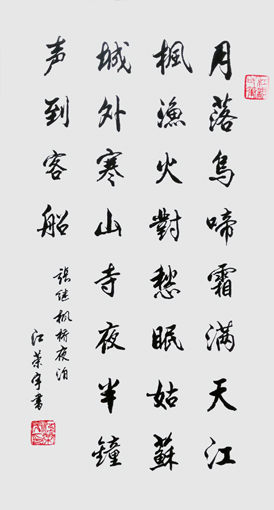 月落烏啼霜满天江
枫漁火對愁眠姑蘇
城外寒山寺夜半鐘
声到客船
張继枫桥夜泊
江荣宇書